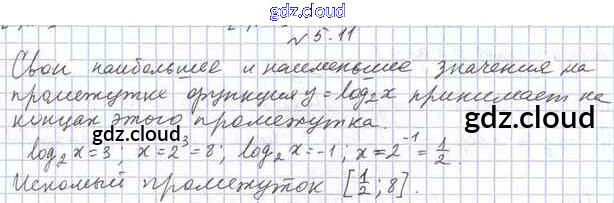 gdz.cloud
№ 5.11
Свои наибольшее и наименьшее значения на
промежутке функция y = log₂x принимает на
концах этого промежутка.
gdz.cloud
gdz.cloud
log₂x = 3; x = 2³ = 8; log₂x = -1; x = 2⁻¹ = 1/2.
Искомый промежуток [1/2; 8].